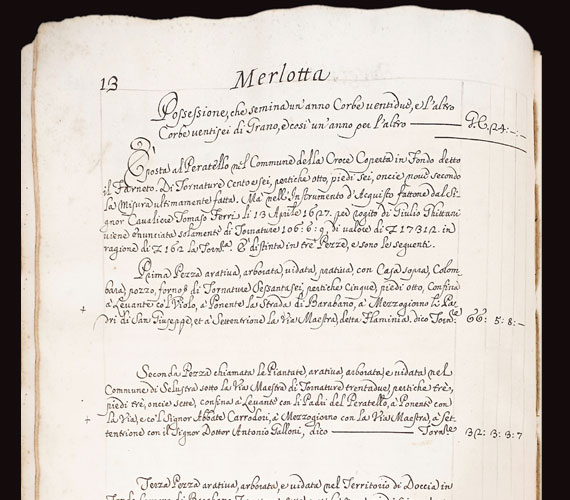 13 Merlotta
Possessione, che semina un'anno Corbe ventidue, e l'altro
Corbe ventisei di Grano, e così un'anno per l'altro G. C. 24: -: -
È posta al Peratello nel Commune della Croce Coperta in Fondo detto
il Farneto. Di Tornature Cento e sei, pertiche otto, piedi sei, oncie nove secondo
la Misura ultimamente fatta. Ma nell'Instrumento d'Acquisto fattone dal Si-
gnor Cavaliere Tomaso Ferri li 13 Aprile 1627. per rogito di Giulio
viene enunciata solamente di Tornature 106: 6: 9. di valore di
ragione di la Tornra. È distinta in trè Pezze, e sono le seguenti.
Prima Pezza arativa, arborata, vidata, prativa, con Casa sopra, Colom-
bara, pozzo, forno, di Tornature Sessantasei, pertiche Cinque, piedi otto, Confina
à Levante co'l Violo, à Ponente la Strada di Barabano, à Mezzogiorno li Pa-
dri di San Giuseppe, et à Settentrione la Via Maestra, detta Flaminia, dico Tornre 66: 5: 8: -
Seconda Pezza chiamata le Piantate, arativa, arborata, e vidata nel
Commune di Selustra sotto la Via Maestra di Tornature trentadue, pertiche trè,
piedi trè, oncie sette, confina à Levante con li Padri del Peratello, à Ponente con
la Via, e co'l Signor Abbate Carrodori, à Mezzogiorno con la Via Maestra, à Set-
tentrione con il Signor Dottor Antonio Galloni, dico Tornre 32: 3: 3: 7
Terza Pezza arativa, arborata, e vidata nel Territorio di Doccia in